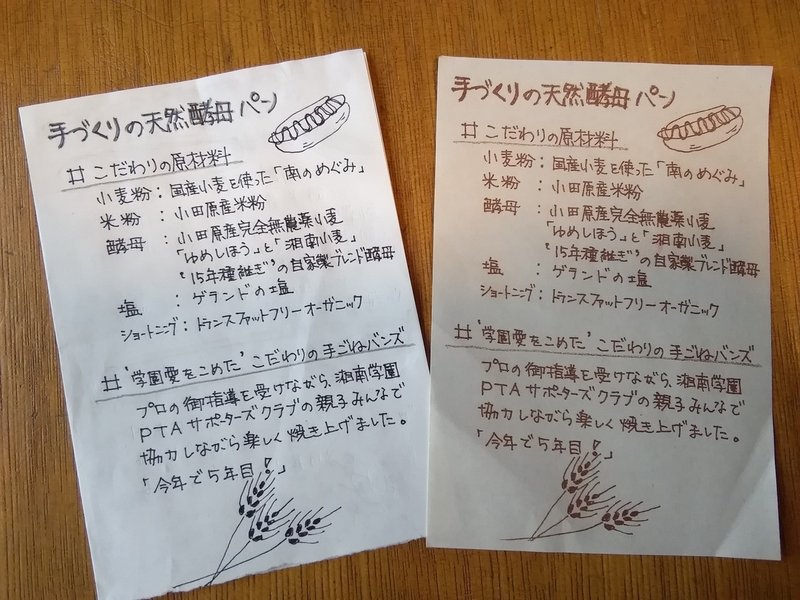 手づくりの天然酵母パン
# こだわりの原材料
小麦粉：国産小麦を使った「南のめぐみ」
米粉：小田原産米粉
酵母：小田原産完全無農薬小麦
「ゆめしほう」と「湘南小麦」
"15年種継ぎ"の自家製ブレンド酵母
塩：ゲランドの塩
ショートニング：トランスファットフリーオーガニック
# "学園愛をこめた"こだわりの手ごねバンズ
プロの御指導を受けながら、湘南学園
PTAサポーターズクラブの親子みんなで
協力しながら楽しく焼き上げました。
「今年で5年目!」
手づくりの天然酵母パン
# こだわりの原材料
小麦粉：国産小麦を使った「南のめぐみ」
米粉：小田原産米粉
酵母：小田原産完全無農薬小麦
「ゆめしほう」と「湘南小麦」
"15年種継ぎ"の自家製ブレンド酵母
塩：ゲランドの塩
ショートニング：トランスファットフリーオーガニック
# "学園愛をこめた"こだわりの手ごねバンズ
プロの御指導を受けながら、湘南学園
PTAサポーターズクラブの親子みんなで
協力しながら楽しく焼き上げました。
「今年で5年目!」